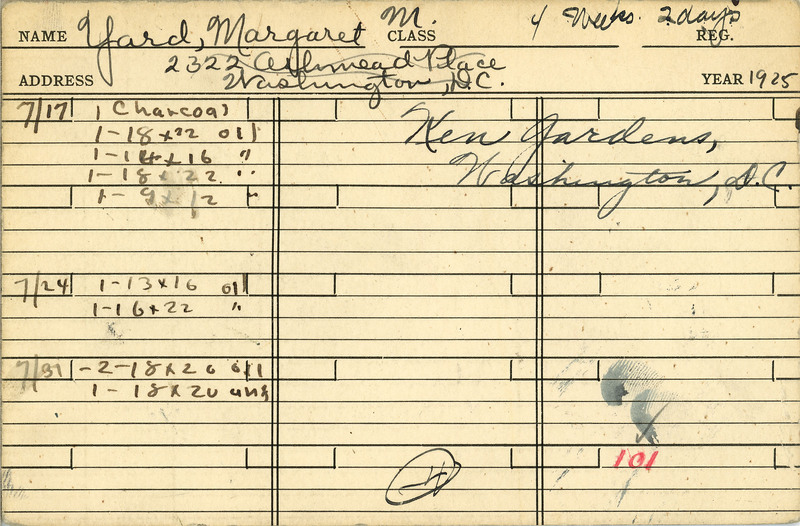 NAME Yard, Margaret M. CLASS 4 Weeks. 2 days REG.
ADDRESS 2322 Ashmead Place
Washington, D.C. YEAR 1925
7/17 1 Charcoal
1-18x22 oil
1-14x16 "
1-18x22 "
1-9x12 "
Ken Gardens,
Washington, D.C.
7/24 1-13x16 oil
1-16x22 "
7/31 -2-18x20 oil
1-18x20
H
101